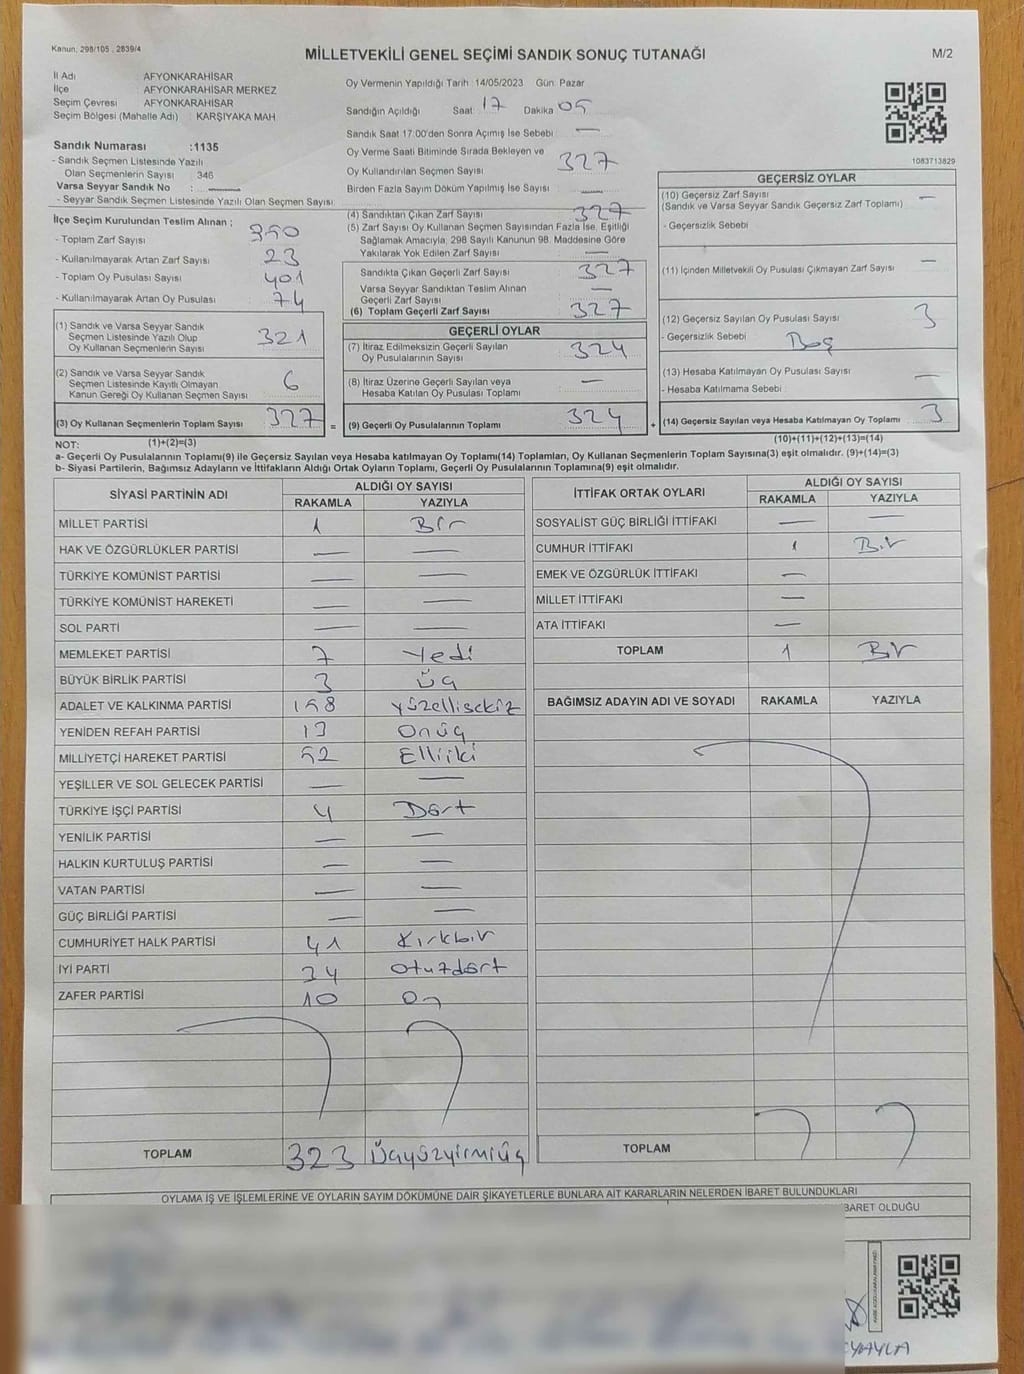 Kanun: 298/105 , 2839/4
MİLLETVEKİLİ GENEL SEÇİMİ SANDIK SONUÇ TUTANAĞI
M/2
İl Adı AFYONKARAHİSAR
İlçe AFYONKARAHİSAR MERKEZ
Seçim Çevresi AFYONKARAHİSAR
Seçim Bölgesi (Mahalle Adı) : KARŞIYAKA MAH
Sandık Numarası :1135
- Sandık Seçmen Listesinde Yazılı
Olan Seçmenlerin Sayısı : 346
Varsa Seyyar Sandık No : —
- Seyyar Sandık Seçmen Listesinde Yazılı Olan Seçmen Sayısı
Oy Vermenin Yapıldığı Tarih 14/05/2023 Gün: Pazar
Sandığın Açıldığı Saat 17 Dakika 05
Sandık Saat 17:00'den Sonra Açımış İse Sebebi : —
Oy Verme Saati Bitiminde Sırada Bekleyen ve
Oy Kullandırılan Seçmen Sayısı 327
Birden Fazla Sayım Döküm Yapılmış İse Sayısı —
1083713829
İlçe Seçim Kurulundan Teslim Alınan ;
- Toplam Zarf Sayısı 350
- Kullanılmayarak Artan Zarf Sayısı : 23
- Toplam Oy Pusulası Sayısı 401
- Kullanılmayarak Artan Oy Pusulası : 74
(1) Sandık ve Varsa Seyyar Sandık
Seçmen Listesinde Yazılı Olup
Oy Kullanan Seçmenlerin Sayısı 321
(2) Sandık ve Varsa Seyyar Sandık
Seçmen Listesinde Kayıtlı Olmayan
Kanun Gereği Oy Kullanan Seçmen Sayısı 6
(3) Oy Kullanan Seçmenlerin Toplam Sayısı 327
(1)+(2)=(3)
(4) Sandıktan Çıkan Zarf Sayısı 327
(5) Zarf Sayısı Oy Kullanan Seçmen Sayısından Fazla İse, Eşitliği
Sağlamak Amacıyla, 298 Sayılı Kanunun 98. Maddesine Göre
Yakılarak Yok Edilen Zarf Sayısı —
Sandıkta Çıkan Geçerli Zarf Sayısı 327
Varsa Seyyar Sandıktan Teslim Alınan
Geçerli Zarf Sayısı —
(6) Toplam Geçerli Zarf Sayısı 327
GEÇERLİ OYLAR
(7) İtiraz Edilmeksizin Geçerli Sayılan
Oy Pusulalarının Sayısı 324
(8) İtiraz Üzerine Geçerli Sayılan veya
Hesaba Katılan Oy Pusulası Toplamı —
= (9) Geçerli Oy Pusulalarının Toplamı 324
GEÇERSİZ OYLAR
(10) Geçersiz Zarf Sayısı —
(Sandık ve Varsa Seyyar Sandık Geçersiz Zarf Toplamı)
- Geçersizlik Sebebi
(11) İçinden Milletvekili Oy Pusulası Çıkmayan Zarf Sayısı —
(12) Geçersiz Sayılan Oy Pusulası Sayısı 3
- Geçersizlik Sebebi Boş
(13) Hesaba Katılmayan Oy Pusulası Sayısı —
- Hesaba Katılmama Sebebi :
+ (14) Geçersiz Sayılan veya Hesaba Katılmayan Oy Toplamı 3
(10)+(11)+(12)+(13)=(14)
NOT:
a- Geçerli Oy Pusulalarının Toplamı(9) ile Geçersiz Sayılan veya Hesaba katılmayan Oy Toplamı(14) Toplamları, Oy Kullanan Seçmenlerin Toplam Sayısına(3) eşit olmalıdır. (9)+(14)=(3)
b- Siyasi Partilerin, Bağımsız Adayların ve İttifakların Aldığı Ortak Oyların Toplamı, Geçerli Oy Pusulalarının Toplamına(9) eşit olmalıdır.
SİYASİ PARTİNİN ADI ALDIĞI OY SAYISI
RAKAMLA YAZIYLA
MİLLET PARTİSİ 1 Bir
HAK VE ÖZGÜRLÜKLER PARTİSİ — —
TÜRKİYE KOMÜNİST PARTİSİ — —
TÜRKİYE KOMÜNİST HAREKETİ — —
SOL PARTİ — —
MEMLEKET PARTİSİ 7 Yedi
BÜYÜK BİRLİK PARTİSİ 3 Üç
ADALET VE KALKINMA PARTİSİ 158 Yüzellisekiz
YENİDEN REFAH PARTİSİ 13 Onüç
MİLLİYETÇİ HAREKET PARTİSİ 52 Elliiki
YEŞİLLER VE SOL GELECEK PARTİSİ — —
TÜRKİYE İŞÇİ PARTİSİ 4 Dört
YENİLİK PARTİSİ — —
HALKIN KURTULUŞ PARTİSİ — —
VATAN PARTİSİ — —
GÜÇ BİRLİĞİ PARTİSİ — —
CUMHURİYET HALK PARTİSİ 41 Kırkbir
İYİ PARTİ 34 Otuzdört
ZAFER PARTİSİ 10 On
TOPLAM 323 Üçyüzyirmiüç
İTTİFAK ORTAK OYLARI ALDIĞI OY SAYISI
RAKAMLA YAZIYLA
SOSYALİST GÜÇ BİRLİĞİ İTTİFAKI — —
CUMHUR İTTİFAKI 1 Bir
EMEK VE ÖZGÜRLÜK İTTİFAKI —
MİLLET İTTİFAKI —
ATA İTTİFAKI —
TOPLAM 1 Bir
BAĞIMSIZ ADAYIN ADI VE SOYADI RAKAMLA YAZIYLA
TOPLAM
OYLAMA İŞ VE İŞLEMLERİNE VE OYLARIN SAYIM DÖKÜMÜNE DAİR ŞİKAYETLERLE BUNLARA AİT KARARLARIN NELERDEN İBARET BULUNDUKLARI
BARET OLDUĞU